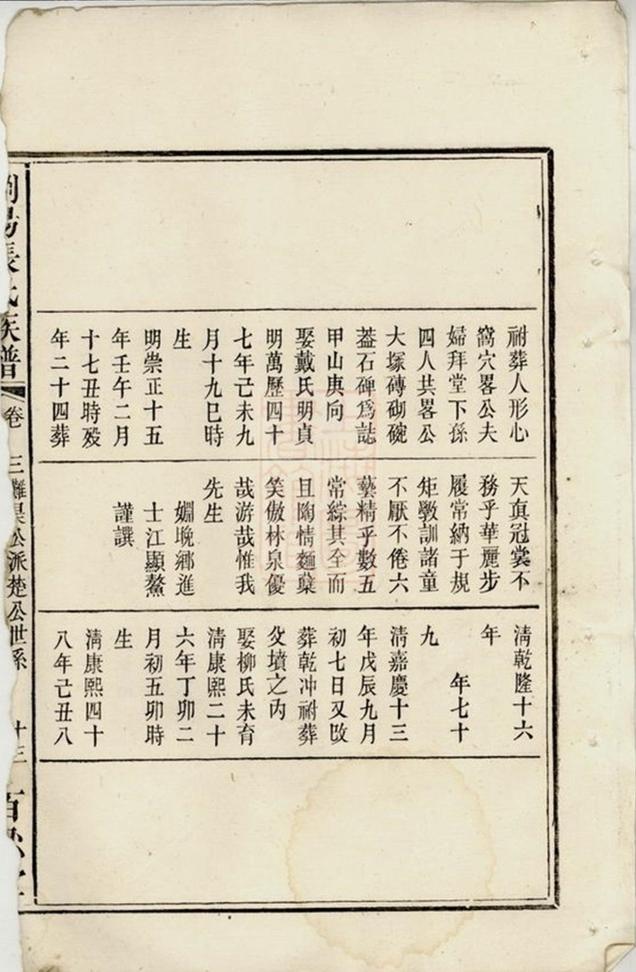 祔葬人形心
窩穴畧公夫
婦拜堂下孫
四人共畧公
大塚磚砌碗
葢石碑爲誌
甲山庚向
娶戴氏明貞
明萬歷四十
七年己未九
月十九巳時
生
明崇正十五
年壬午二月
十七丑時殁
年二十四葬
天真冠裳不
務乎華麗步
履常納于規
矩斆訓諸童
不厭不倦六
藝精乎數五
常綜其全而
且陶情麯蘖
笑傲林泉優
哉游哉惟我
先生
姻晚鄉進
士江顯鰲
謹譔
清乾隆十六
年
年七十
九
清嘉慶十三
年戊辰九月
初七日又改
葬乾冲祔葬
父墳之丙
娶柳氏未育
清康熙二十
六年丁卯二
月初五卯時
生
清康熙四十
八年己丑八
瀏陽張氏族譜
卷三
公派楚公世系
十三
百忍